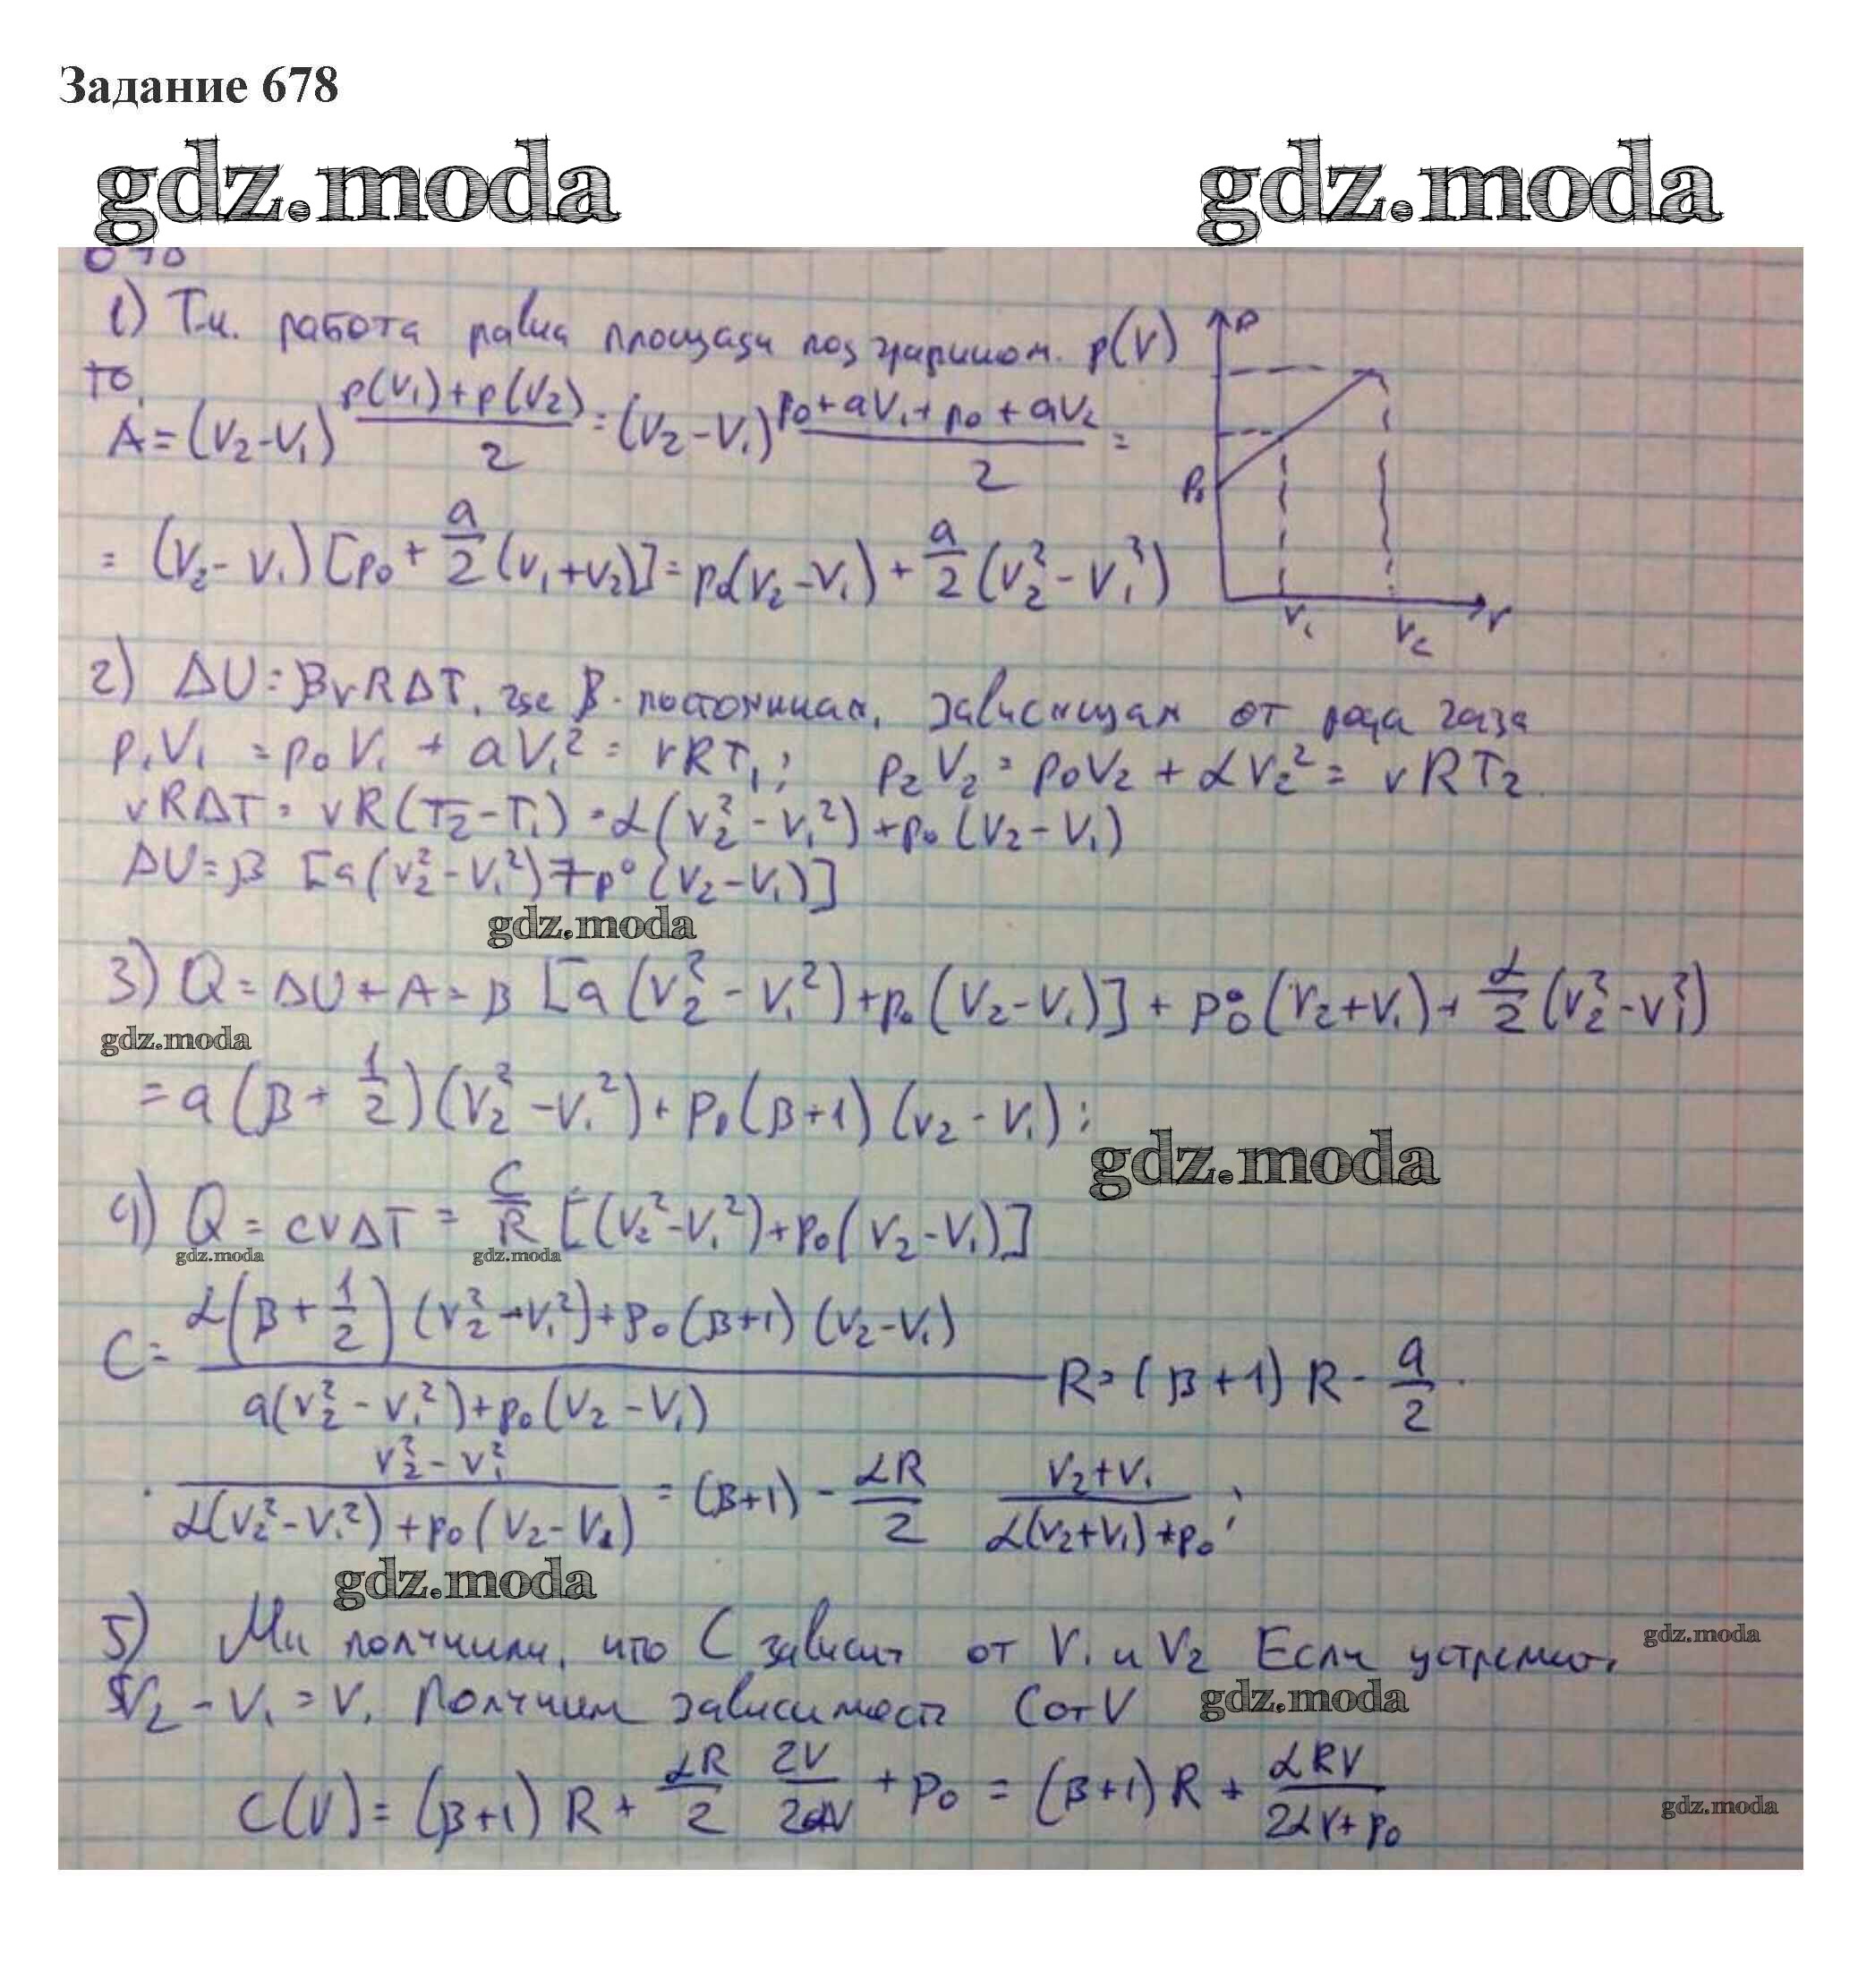 Задание 678
gdz.moda gdz.moda
678
1) Т.к. работа равна площади под графиком p(V)
то,
A = (V₂-V₁) (p(V₁)+p(V₂))/2 = (V₂-V₁) (p₀+aV₁+p₀+aV₂)/2 =
= (V₂-V₁)[p₀+a/2(V₁+V₂)] = p₀(V₂-V₁) + a/2(V₂²-V₁²)
p
P₀
V₁ V₂ V
2) ΔU = βνRΔT, где β - постоянная, зависящая от рода газа
p₁V₁ = p₀V₁ + aV₁² = νRT₁; p₂V₂ = p₀V₂ + αV₂² = νRT₂
νRΔT = νR(T₂-T₁) = α(V₂²-V₁²)+p₀(V₂-V₁)
ΔU = β [a(V₂²-V₁²)+p₀(V₂-V₁)]
gdz.moda
3) Q = ΔU + A = β [a(V₂²-V₁²)+p₀(V₂-V₁)] + p₀(V₂+V₁) + α/2(V₂²-V₁²)
gdz.moda
= a(β+1/2)(V₂²-V₁²)+p₀(β+1)(V₂-V₁);
gdz.moda
4) Q = CνΔT = C/R [(V₂²-V₁²)+p₀(V₂-V₁)]
gdz.moda gdz.moda
C = (α(β+1/2)(V₂²-V₁²)+p₀(β+1)(V₂-V₁))/(a(V₂²-V₁²)+p₀(V₂-V₁)) R = (β+1)R - a/2 ·
· (V₂²-V₁²)/(α(V₂²-V₁²)+p₀(V₂-V₁)) = (β+1) - αR/2 (V₂+V₁)/(α(V₂+V₁)+p₀);
gdz.moda
5) Ми получили, что C зависит от V₁ и V₂ Если
gdz.moda
V₂-V₁=V, Получим зависимость C от V
gdz.moda
C(V) = (β+1)R + αR/2 2V/2αV + p₀ = (β+1)R + αRV/(2αV+p₀)
gdz.moda